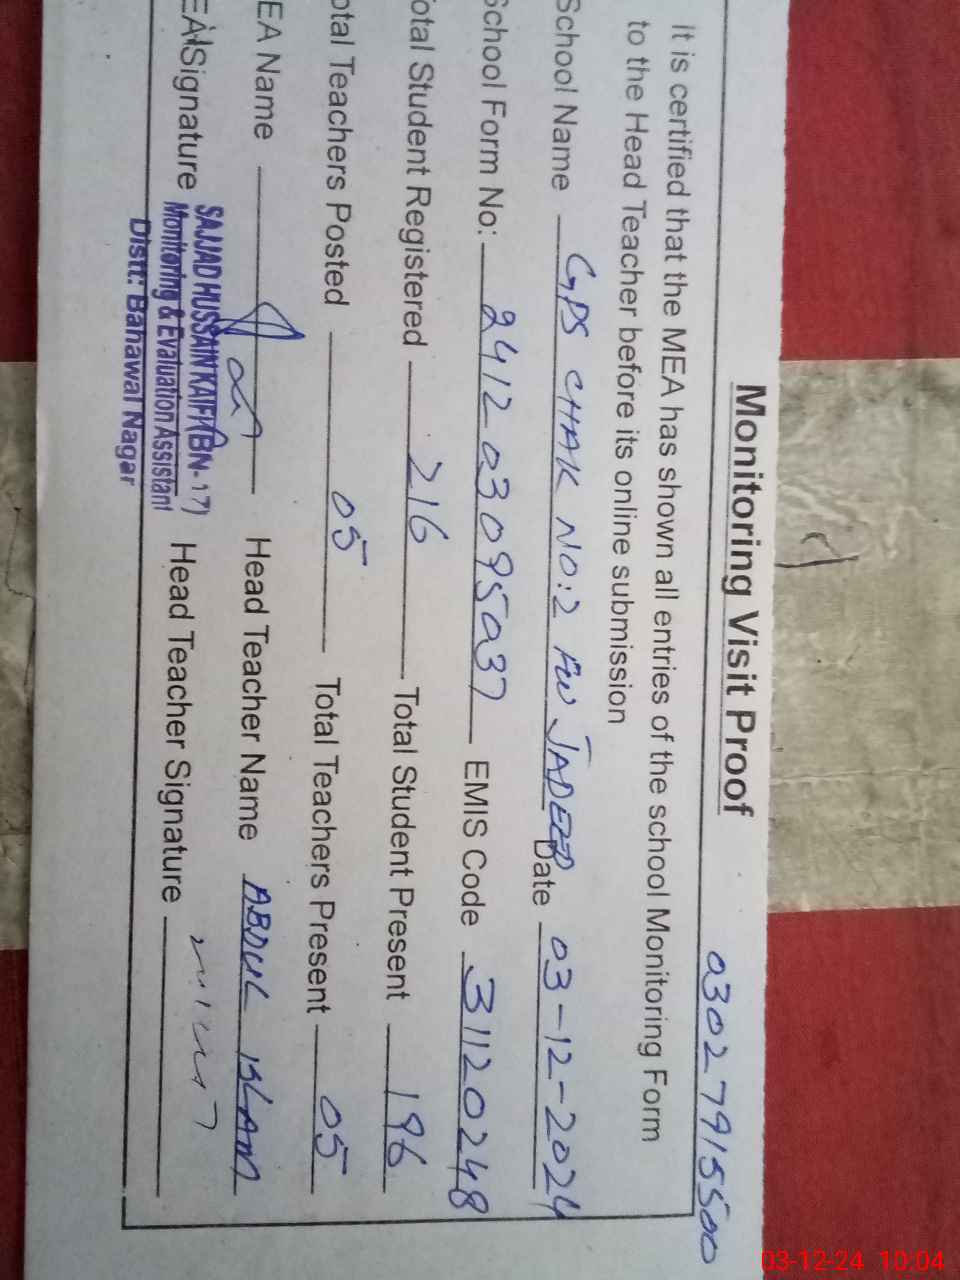 Monitoring Visit Proof
03027915500
It is certified that the MEA has shown all entries of the school Monitoring Form
to the Head Teacher before its online submission
School Name GPS CHAK NO:2 FW JADEED Date 03-12-2024
School Form No: 241203095037 EMIS Code 31120248
otal Student Registered 216 Total Student Present 196
otal Teachers Posted 05 Total Teachers Present 05
EA Name Head Teacher Name ABDUL ISLAM
EA Signature Head Teacher Signature
SAJJAD HUSSAIN KAIFI (BN-17)
Monitoring & Evaluation Assistant
Distt: Bahawal Nagar
03-12-24 10:04